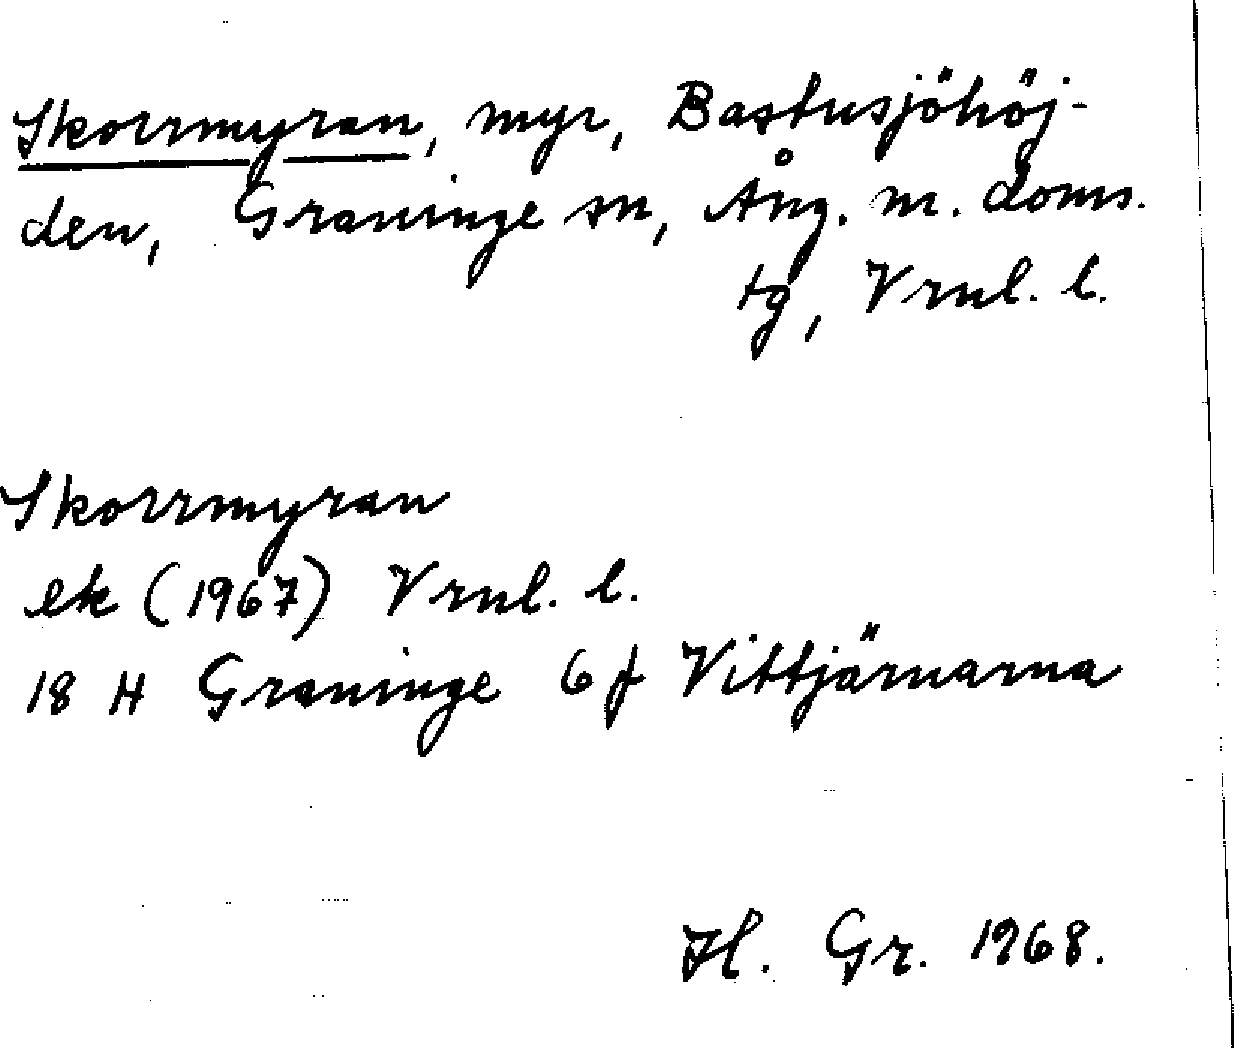 Skorrmyran, myr, Bastusjöhöj-
den, Graninge sn, Ång. m. doms.
tg, Vrnl. l.
Skorrmyran
ek (1967) Vrnl. l.
18 H Graninge 6 f Vittjärnarna
Hl. Gr. 1968.